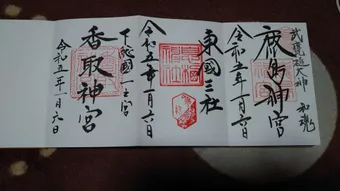 武甕槌大神 和魂
鹿島神宮
令和五年一月六日
東國三社
令和五年一月六日
下総國一之宮
香取神宮
令和五年一月六日